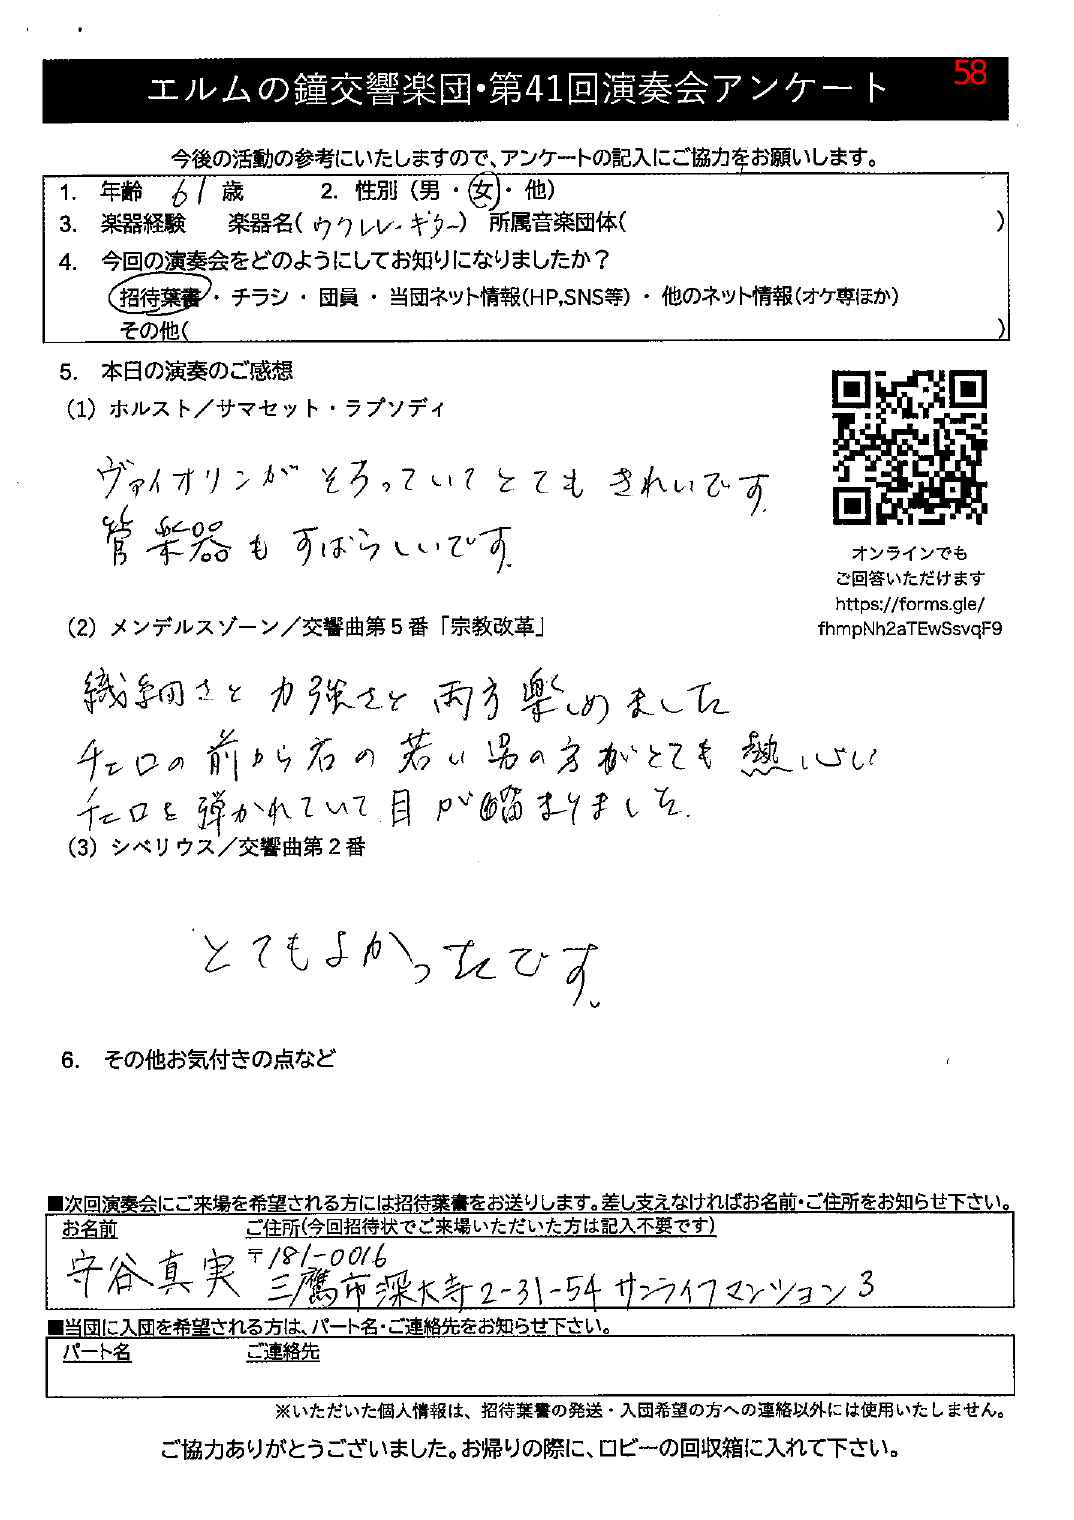 エルムの鐘交響楽団・第41回演奏会アンケート
58
今後の活動の参考にいたしますので、アンケートの記入にご協力をお願いします。
1. 年齢 61 歳 2. 性別 (男・女・他)
3. 楽器経験 楽器名( ウクレレ・ギター) 所属音楽団体( )
4. 今回の演奏会をどのようにしてお知りになりましたか？
招待葉書・チラシ・団員・当団ネット情報(HP,SNS等)・他のネット情報(オケ専ほか)
その他( )
5. 本日の演奏のご感想
(1) ホルスト／サマセット・ラプソディ
ヴァイオリンが そろっていてとても きれいです.
管楽器も すばらしいです.
オンラインでも
ご回答いただけます
https://forms.gle/
fhmpNh2aTEwSsvqF9
(2) メンデルスゾーン／交響曲第5番「宗教改革」
織細さと 力強さと 両方 楽しめました
チェロの 前から右の 若い 男の方がとても 熱心い
チェロを 弾かれていて 目が 溜まりました.
(3) シベリウス／交響曲第2番
とてもよかったです.
6. その他お気付きの点など
■次回演奏会にご来場を希望される方には招待葉書をお送りします。差し支えなければお名前・ご住所をお知らせ下さい。
お名前 ご住所(今回招待状でご来場いただいた方は記入不要です)
守谷真実 〒181-0016
三鷹市深大寺2-31-54 サンライフマンション3
■当団に入団を希望される方は、パート名・ご連絡先をお知らせ下さい。
パート名 ご連絡先
※いただいた個人情報は、招待葉書の発送・入団希望の方への連絡以外には使用いたしません。
ご協力ありがとうございました。お帰りの際に、ロビーの回収箱に入れて下さい。